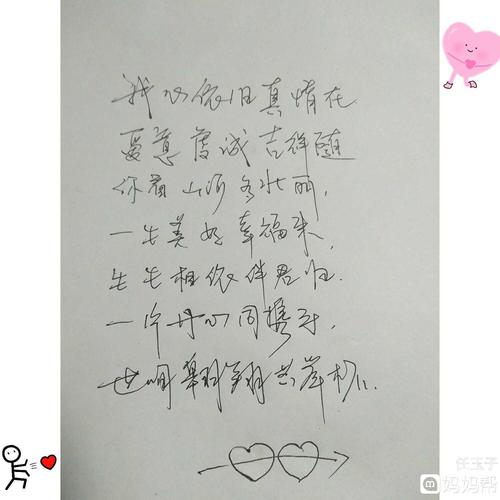 我心依旧真情在
爱意虔诚吉祥随
你看山河多壮丽,
一生美好幸福来,
生生相依伴君归.
一片丹心同携手,
世间翱翔共
任玉子
妈妈帮